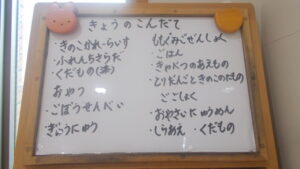 きょうのこんだて
・きのこかれーらいす
・ふれんちさらだ
・くだもの(
おやつ
・ごぼうせんべい
・ぎゅうにゅう
ももぐみごぜんしょく
・ごはん
・きゃべつのあえもの
・とりだんごときのこのにもの
ごごしょく
・おやさいにゅうめん
・しらあえ ・くだもの